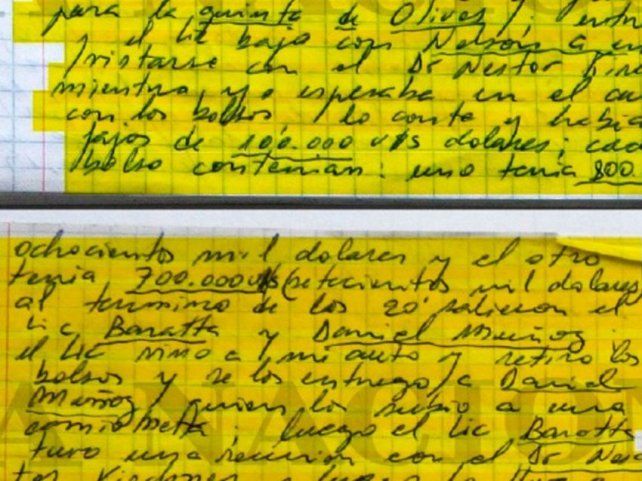 para la quinta de Olivos/. entr
el Lic bajo con Nelson a en
/vistarse con el Dr Nestor Kir
mientras, yo esperaba en el au
con los bolsos/ los conte y habia
fajos de 100.000 u/s dolares; cad
bolso contenian: uno tenia 800.
ochocientos mil dolares y el otro
tenia 700.000 u/s (setecientos mil dolares
al termino de los 20' salieron el
Lic Baratta y Daniel Muñoz.
el Lic vino a mi auto y retiro los
bolsos y se los entrego/a Daniel
Muñoz/ quien los subio a una
camioneta, luego el Lic Baratta
tuvo una reunion con el Dr Nes
LA NACION